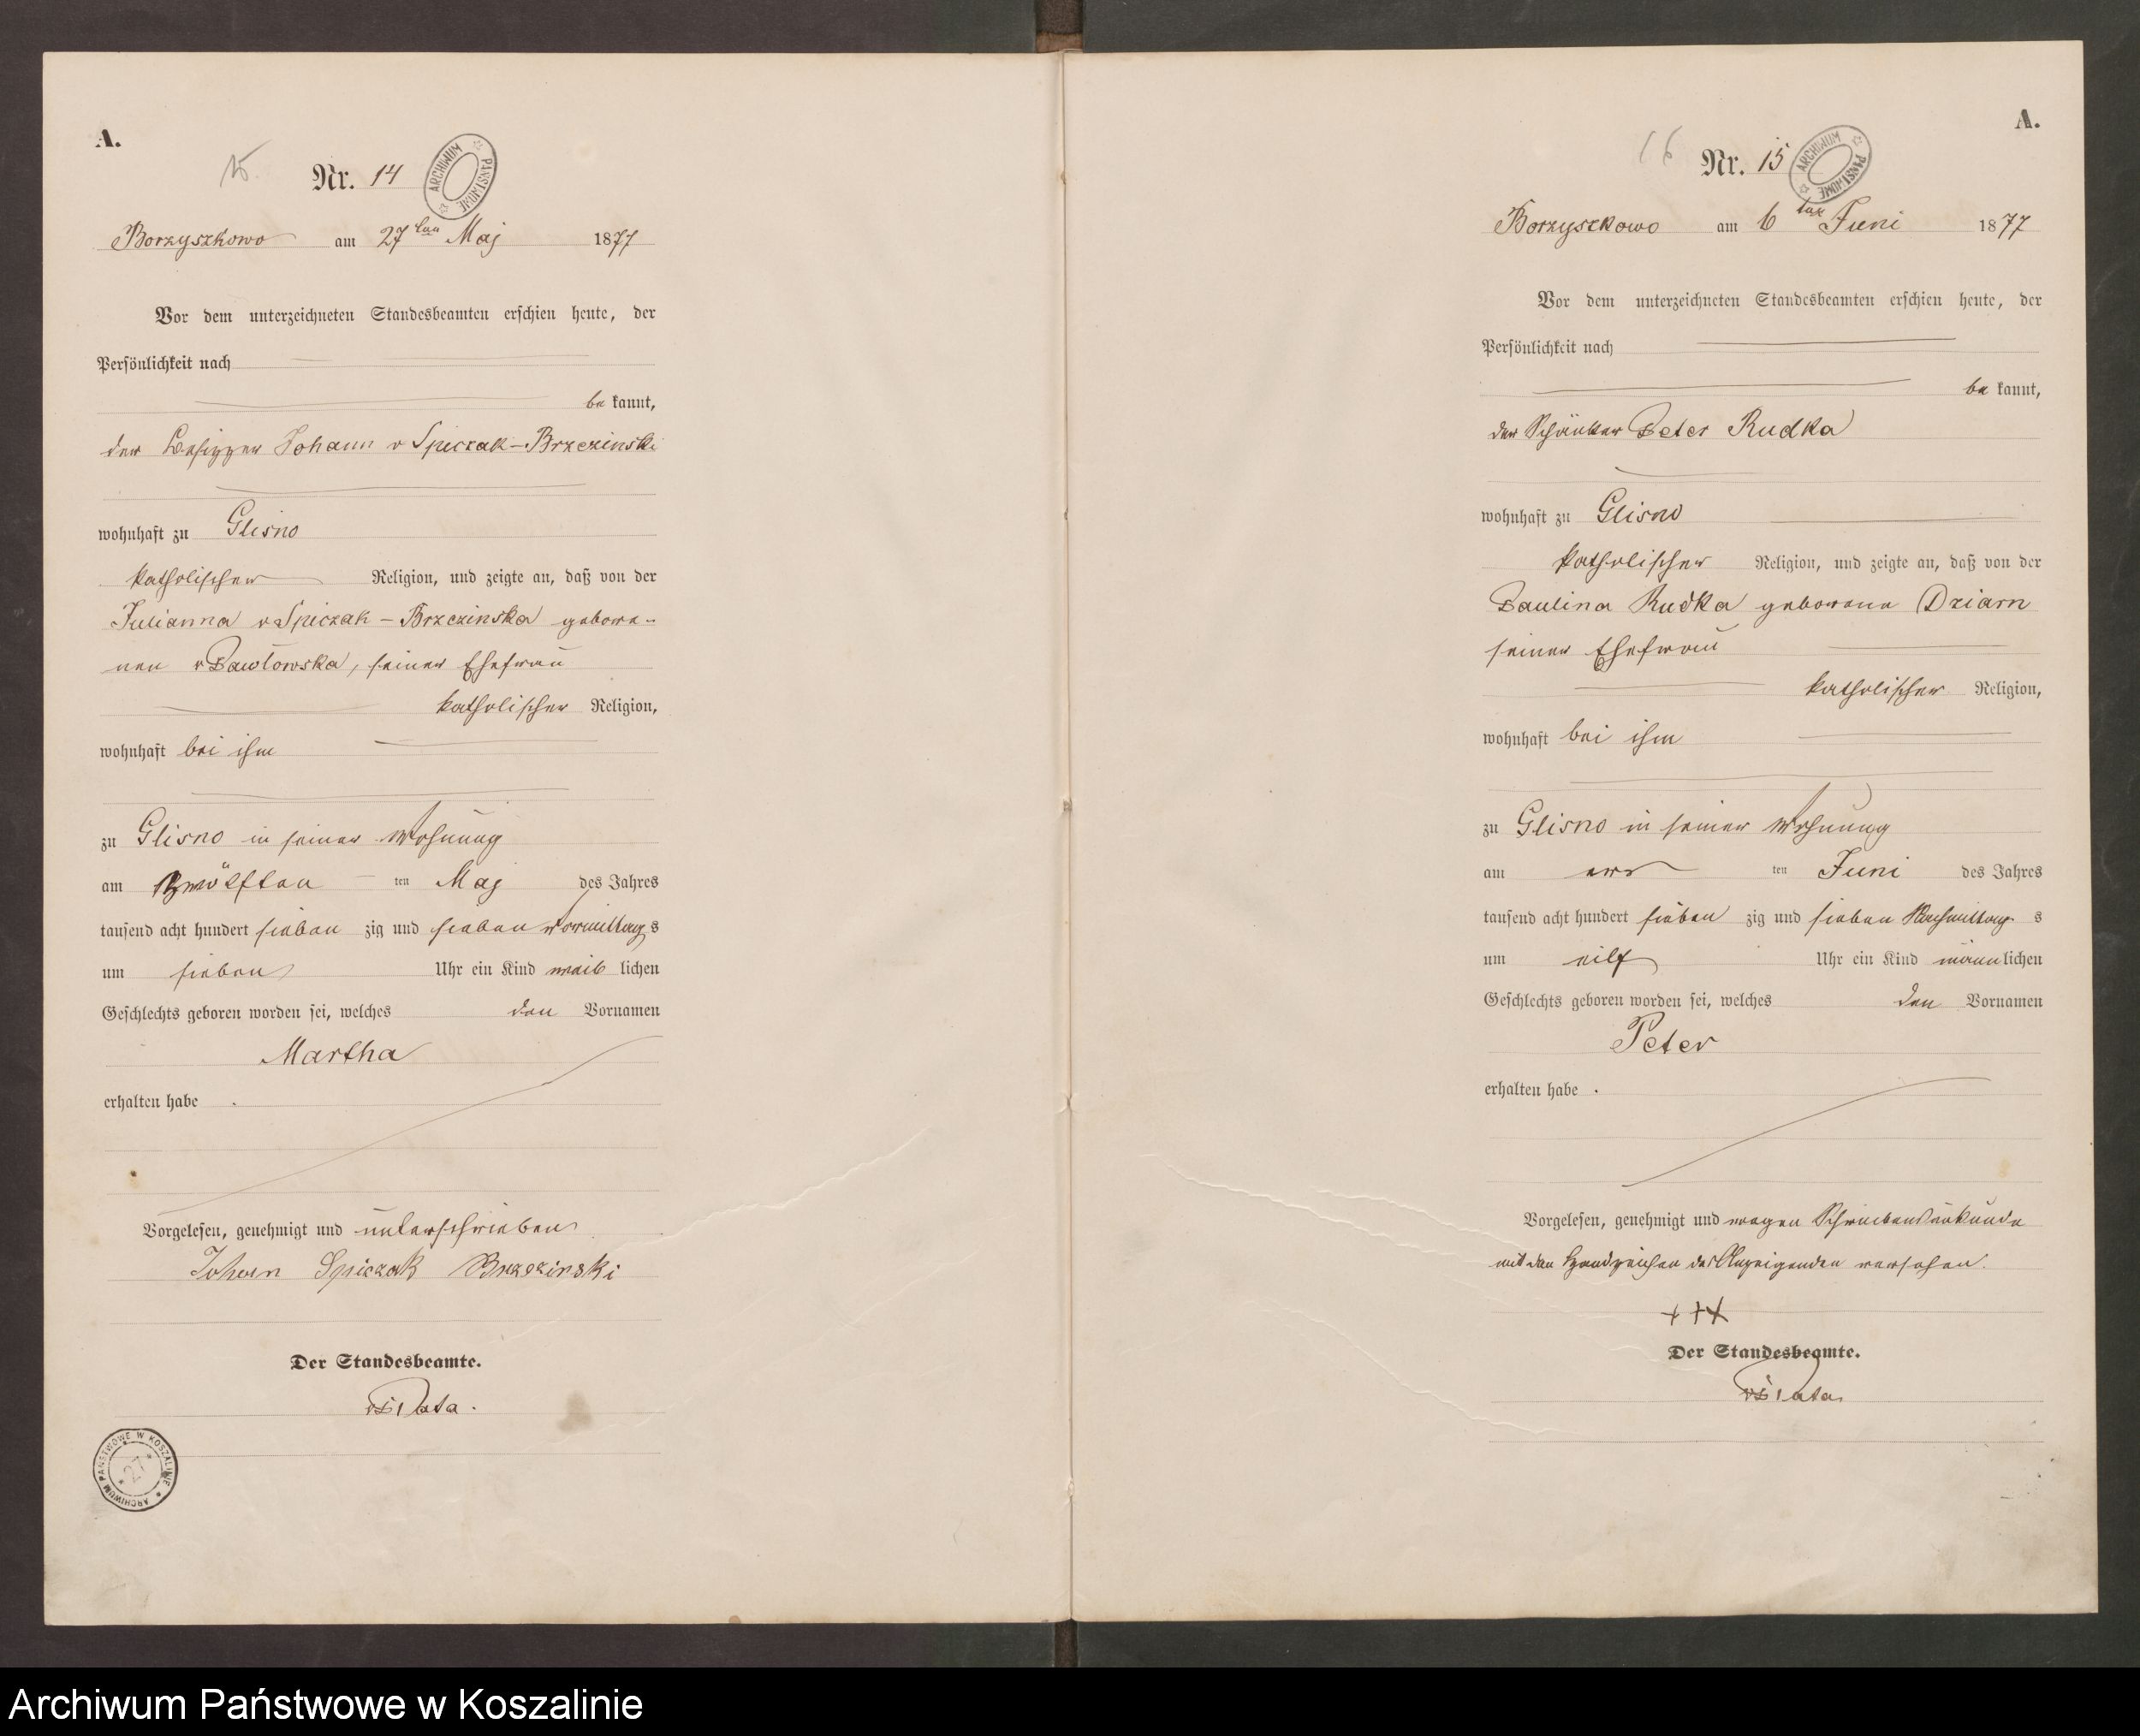 A.
15.
Nr. 14
ARCHIWUM PAŃSTWOWE
Borzyszkowo am 27ten Maj 1877
Vor dem unterzeichneten Standesbeamten erschien heute, der
Persönlichkeit nach
be kannt,
der Besitzer Johann v Spiczak-Brzezinski
wohnhaft zu Glisno
katholischer Religion, und zeigte an, daß von der
Julianna v Spiczak-Brzezinska gebore-
nen v Pawlowska, seiner Ehefrau
katholischer Religion,
wohnhaft bei ihm
zu Glisno in seiner Wohnung
am zwölften ten Maj des Jahres
tausend acht hundert sieben zig und sieben Vormittag s
um sieben Uhr ein Kind weib lichen
Geschlechts geboren worden sei, welches den Vornamen
Martha
erhalten habe .
Vorgelesen, genehmigt und unterschrieben
Johan Spiczak Brzezinski
Der Standesbeamte.
Pata.
ARCHIWUM PAŃSTWOWE W KOSZALINIE
27
A.
16
Nr. 15
ARCHIWUM PAŃSTWOWE
Borzyszkowo am 6ten Juni 1877
Vor dem unterzeichneten Standesbeamten erschien heute, der
Persönlichkeit nach
be kannt,
der Schänker Peter Rudka
wohnhaft zu Glisno
katholischer Religion, und zeigte an, daß von der
Paulina Rudka geborene Dziarn
seiner Ehefrau
katholischer Religion,
wohnhaft bei ihm
zu Glisno in seiner Wohnung
am ers ten Juni des Jahres
tausend acht hundert sieben zig und sieben Nachmittag s
um eilf Uhr ein Kind männ lichen
Geschlechts geboren worden sei, welches den Vornamen
Peter
erhalten habe .
Vorgelesen, genehmigt und wegen Schreibensunkunde
mit den Handzeichen des Anzeigenden versehen.
+++
Der Standesbeamte.
Pata
Archiwum Państwowe w Koszalinie